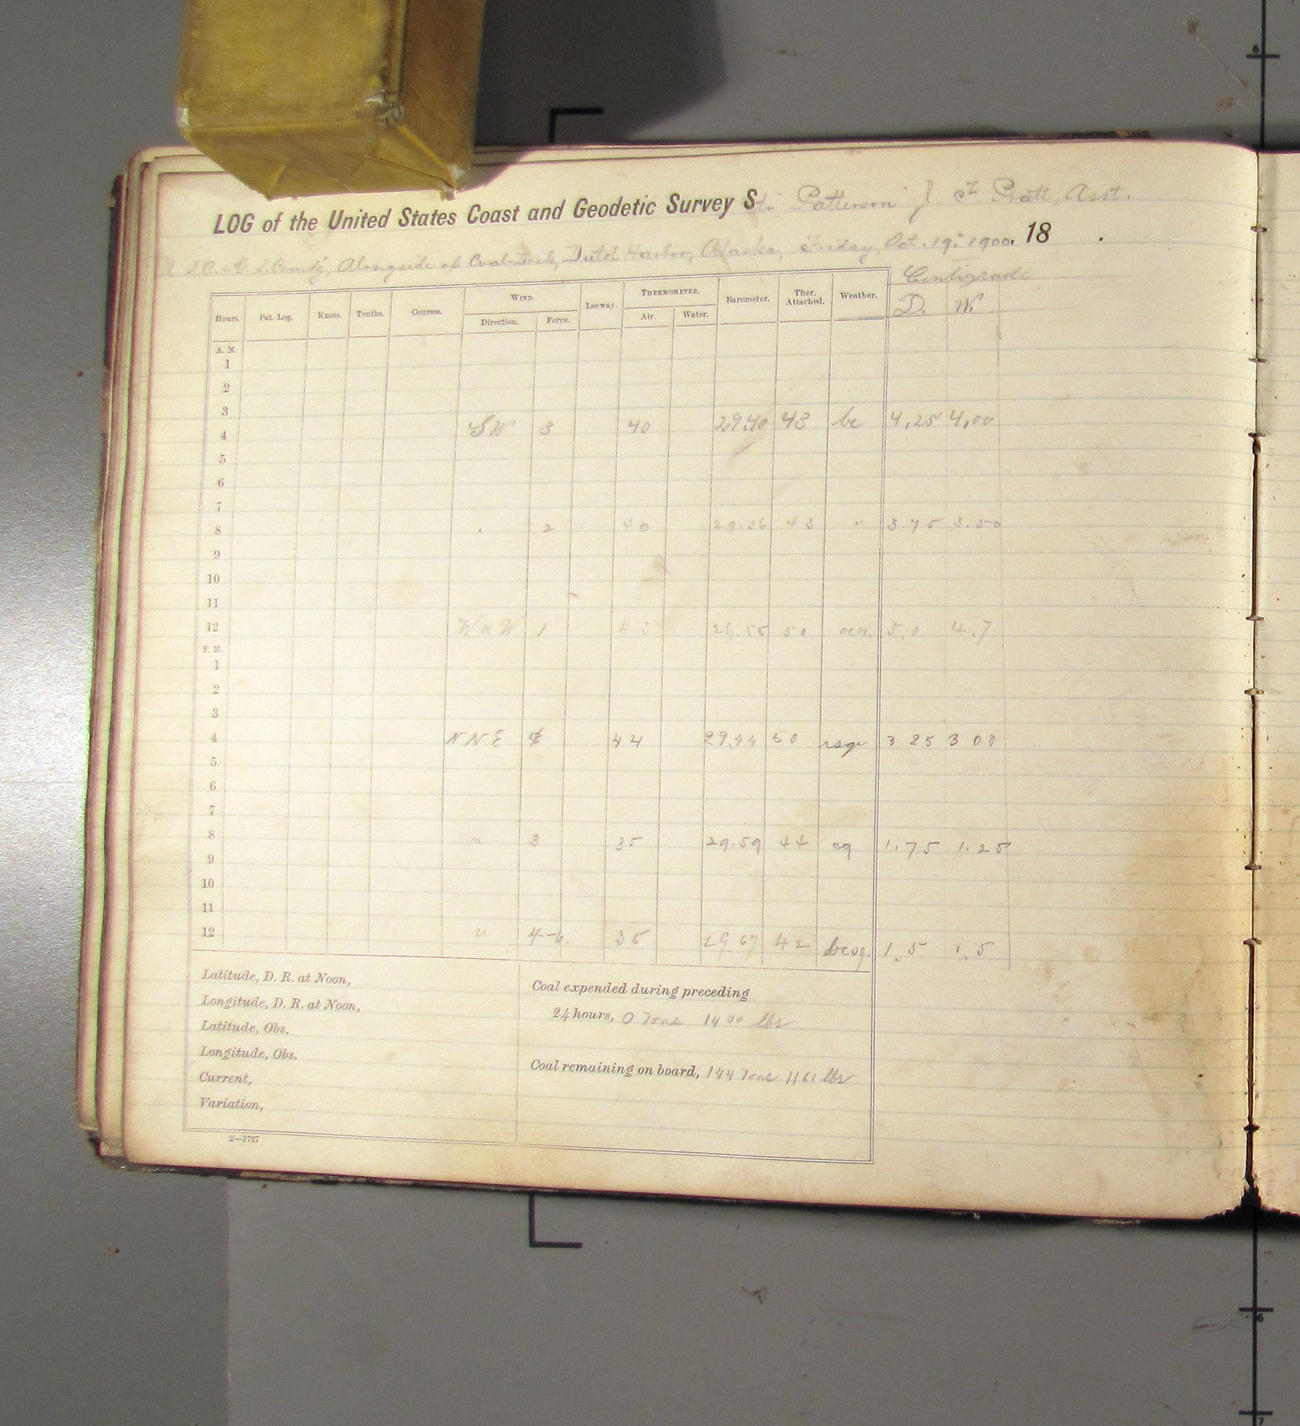 LOG of the United States Coast and Geodetic Survey Str. Patterson J. F. Pratt, Asst.
Comdg, Alongside of Coal-Dock, Dutch Harbor, Alaska, Friday, Oct. 19, 1900. 18 .
Centigrade
Hours. Pat. Log. Knots. Tenths. Courses. WIND. Leeway. THERMOMETER. Barometer. Ther. Attached. Weather. D. W.
Direction. Force. Air. Water.
A. M.
1
2
3
4 SW 3 40 29.40 43 bc 4.25 4.00
5
6
7
8 " 2 40 29.36 43 " 3.75 3.50
9
10
11
12 WNW 1 50 5.0 4.7
P. M.
1
2
3
4 NNE 44 29.44 50 3 25 3 00
5
6
7
8 " 3 35 29.59 44 cq 1.75 1.25
9
10
11
12 " 4-6. 35 29.67 42 bcoq. 1.5 1.5
Latitude, D. R. at Noon,
Longitude, D. R. at Noon,
Latitude, Obs.
Longitude, Obs.
Current,
Variation,
Coal expended during preceding
24 hours, 0 Tons 1400 lbs
Coal remaining on board, 144 Tons 1161 lbs
2—1727
6
6
7